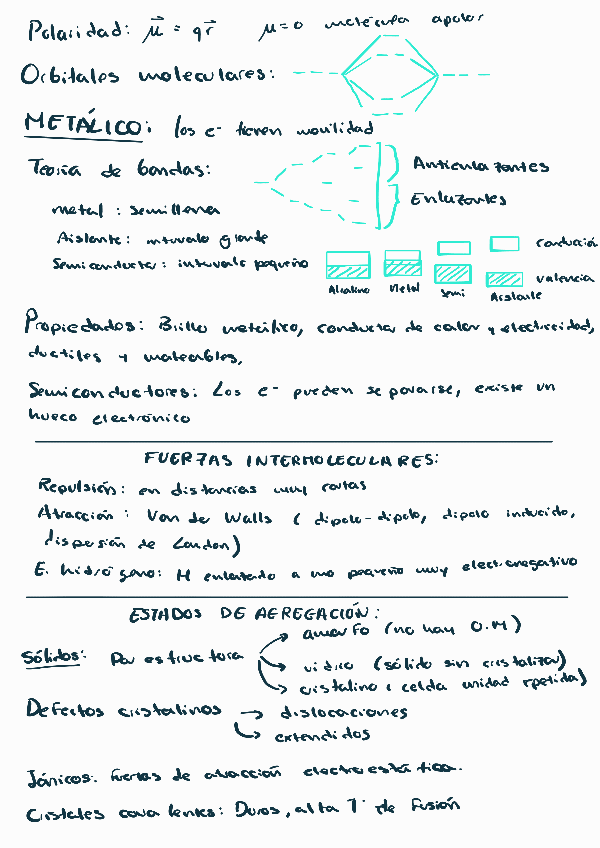 Polaridad: μ⃗ = q r⃗   μ=0 molécula apolar
Orbitales moleculares:
METÁLICO: los e⁻ tienen movilidad
Teoría de bandas:
Antienlazantes
Enlazantes
metal : semillena
Aislante: intervalo grande
Semiconductor: intervalo pequeño
conducción
valencia
Alcalino Metal Semi Aislante
Propiedades: Brillo metálico, conductor de calor y electricidad,
ductiles y maleables,
Semiconductores: Los e⁻ pueden separarse, existe un
hueco electrónico
FUERZAS INTERMOLECULARES:
Repulsión: en distancias muy cortas
Atracción : Van der Walls ( dipolo-dipolo, dipolo inducido,
dispersión de London)
E. hidrógeno: H enlazado a uno pequeño muy electronegativo
ESTADOS DE AGREGACIÓN:
amorfo (no hay O.M)
Sólidos: Por estructura
vidrio (sólido sin cristalizar)
cristalino ( celda unidad repetida)
Defectos cristalinos → dislocaciones
extendidos
Iónicos: fuerzas de atracción electroestática.
Cristales covalentes: Duros, alta Tª de fusión